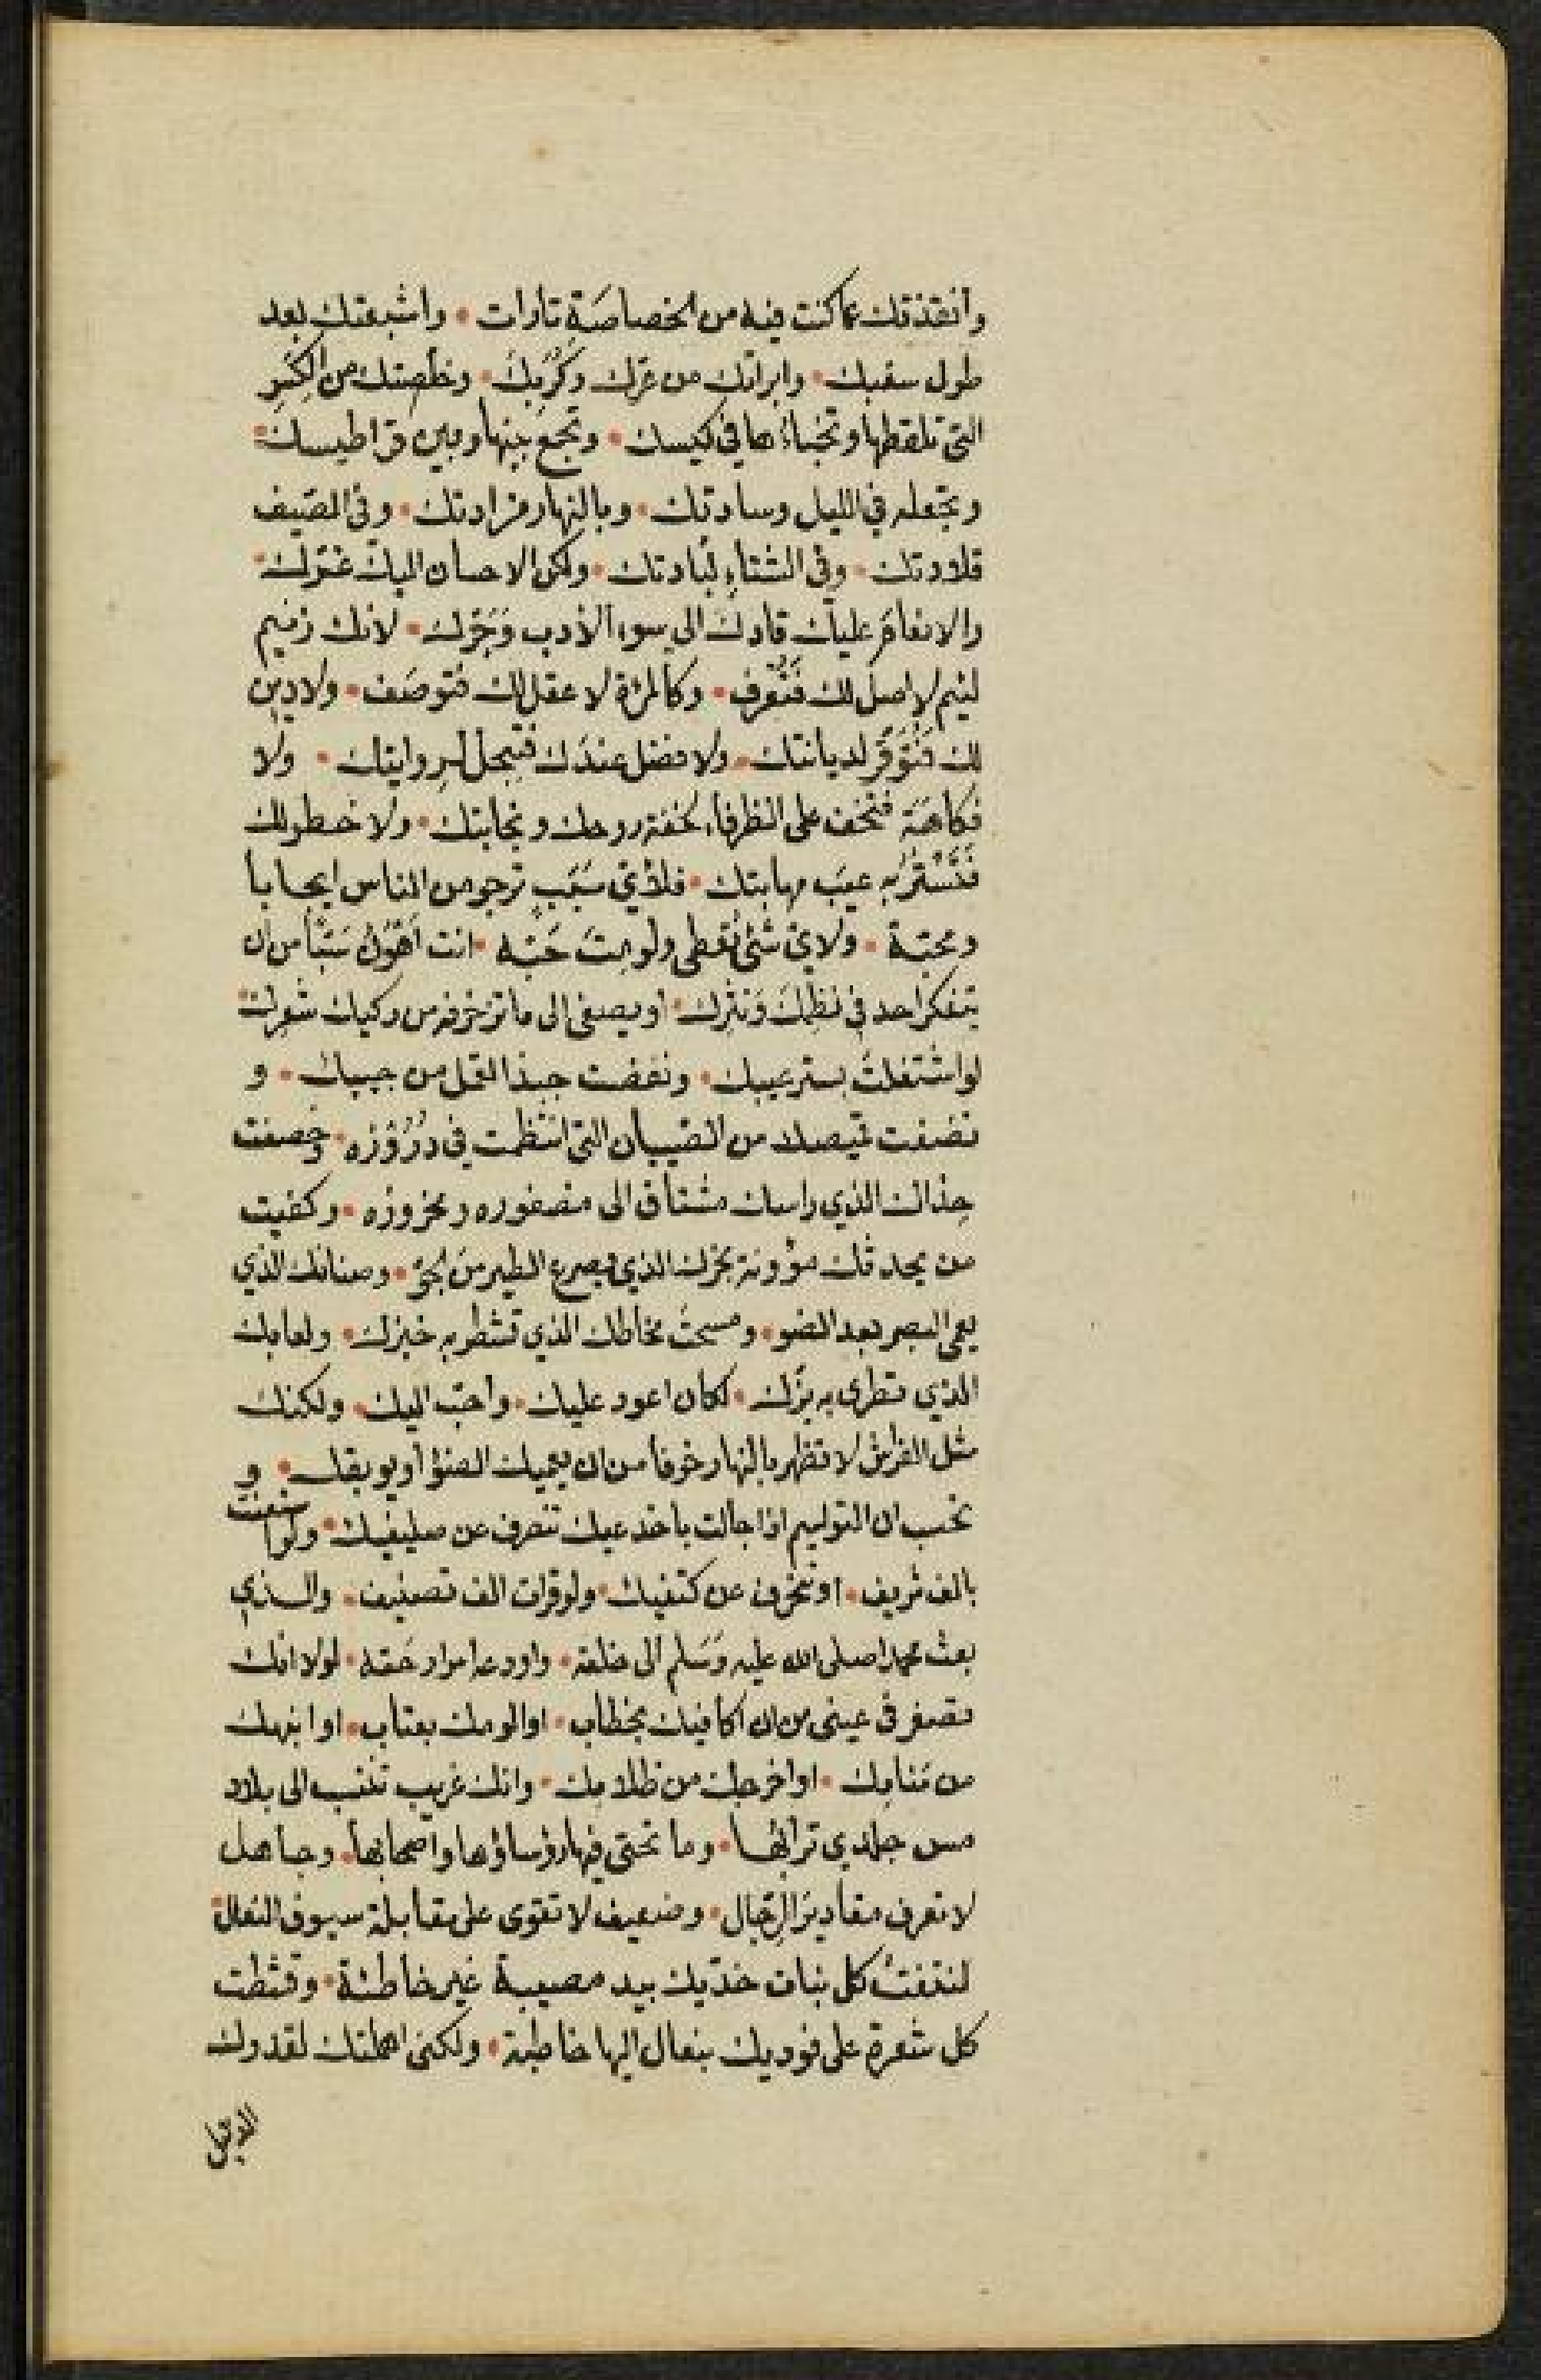 وأنقذتك عما كنت فيه من الخصاصَةِ تارات • واشبعتك بعد
طول سغبك • وابراتك من عرّك وَكُرَبِكَ • وخلّصتك من الكِسَرِ
التى تلقطها وتخباءُها فى كيسك • وتجمعُ بينها وبين قراطيسك •
وتجعله في الليل وسادتك • وبالنهار مزادتك • وفى المصَيف
قلادتك • وفى الشتاءِ لُبادتك • ولكن الاحسان اليك غَرّك •
والانعامَ عليكَ قادكَ الى سوء الأدب وَجَرّك • لانك زنيم
لئيم لا اصلَ لك فَتُعرف • وكالمرْة لا عقل لك فتوصَف • ولا دين
لك فَتُوَقّر لديانتك • ولا فضل عندَك فتبجل لروايتك • ولا
فكاهَة فتخف على الظرفاء لخفة روحك ونجابتك • ولا خط لك
فَتَسْتُرَ به عيبَ مهابتك • فلأيّ سَبَبٍ ترجو من الناس ايجابا
ومحبّة • ولايّ شئ تُعطى ولو متَ حَبّه • انت أهْوَنُ سَبَباً من ان
يتفكر احد في نظمِكَ وَنثرِك • او يصغى الى ما تزخرفه من ركيك شعرك •
لو اشتغلتَ بستر عيبك • ونفضت جبذا القمل من جيبك • و
نضفت قيصك من الصّيبان التى انتظمت فى دُرُوزه • وخصفت
حِذاك الذي راسك مشتاق الى مضفوره ومخروزه • وكفيت
من يحدثك مؤونة بخرك الذي يصرع الطير منَ الجوّ • وصنانك الذي
يعمى البصر بعد الضو • ومسحت مخاطك الذي تشطر به خبزك • ولعابك
الذي تطرى به بزّك • لكان اعود عليك • وأحبّ اليك • ولكنك
مثل الفراش لا تظهر بالنهار خوفا من ان يعميك الضوْ أو يوبقك • و
تحسب ان التوليم اذا جالت باخدعيك تنصرف عن صليفيك • ولو استعنت
بالف شريف • او تنحرف عن كتفيك • ولو قرات الف تصنيف • والـذي
بعث محمدا صلى الله عليه وَسَلم الى خلقه • واودعه اسرار حَقه • لولا انك
تصغر فى عينى من ان اكافيك بخطاب • او الومك بعتاب • او انبهك
من مَنامِك • او اخرجك من ظلامِك • وانك غريب تنتسب الى بلاد
مس جلدي ترابُها • وما تحتى فيها رؤساؤها واصحابها • وجاهل
لا تعرف مقاديرَ الرّجال • وضعيف لا تقوى على مقابلة سيوف النعال •
لنتفتُ كل نبات خدّيك بيد مصيبة غير خاطئة • وقشطت
كل شعرة على فوديك بنعال اليها خاطبة • ولكنى اهملتك لقدرك